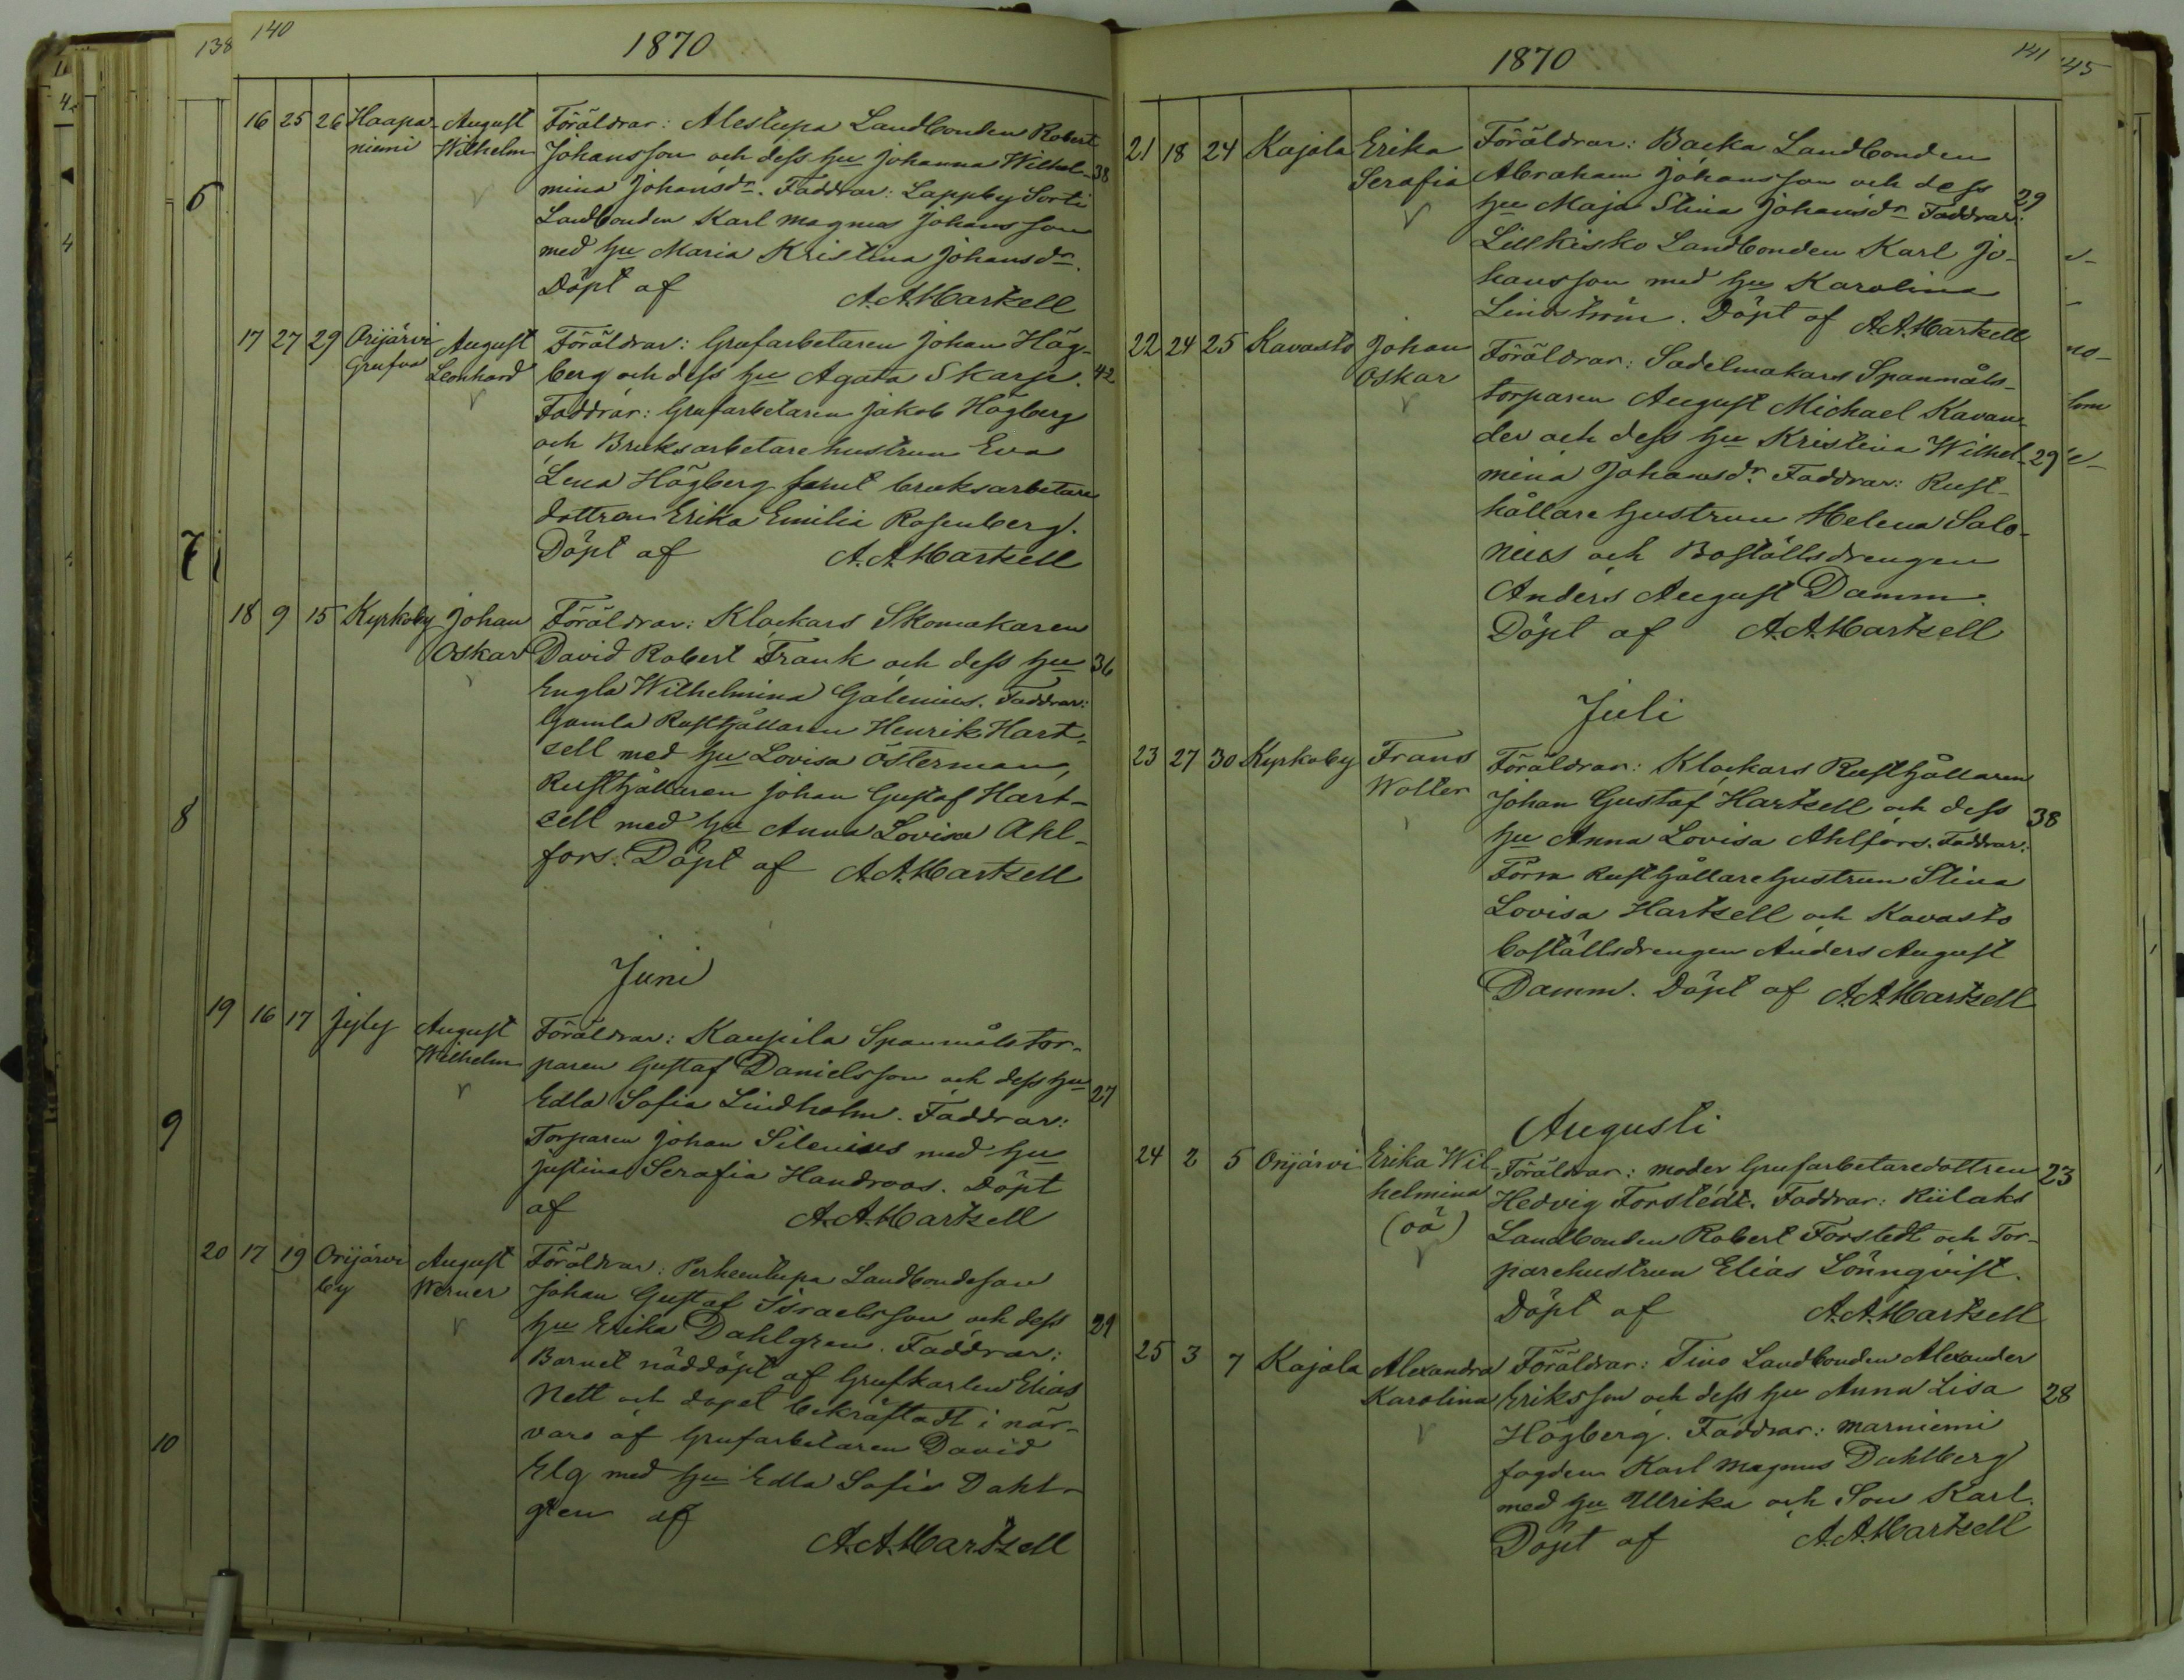 138
140
1870
16 25 26 Haapa- August Föräldrar: Alestupa Landbonden Robert
niemi Wilhelm Johansson och dess hu Johanna Wilhel- 38
mina Johansdr. Faddrar: Lappby Sorti
Landbonden Karl Magnus Johansson
med hu Maria Kristina Johansdr.
Döpt af A.A.Hartzell
17 27 29 Orijärvi August Föräldrar: Grufarbetaren Johan Hög-
Grufva Leonhard berg och dess hu Agata Skarp. 42
Faddrar: Grufarbetaren Jakob Högberg
och Bruksarbetarehustrun Eva
Lena Högberg samt bruksarbetare
dottren Erika Emilia Rosenberg.
Döpt af A.A.Hartzell
18 9 15 Kyrkoby Johan Föräldrar: Klockars Skomakaren
Oskar David Robert Frank och dess hu 36
Engla Wilhelmina Galenius. Faddrar:
Gamla Rusthållaren Henrik Hart-
zell med hu Lovisa Österman,
Rusthållaren Johan Gustaf Hart-
zell med hu Anna Lovisa Ahl-
fors. Döpt af A.A.Hartzell
Juni
19 16 17 Jyly August Föräldrar: Kaupila Spanmålstor-
Wilhelm paren Gustaf Danielsson och dess hu 27
Edla Sofia Lindholm. Faddrar:
Torparen Johan Silenius med hu
Justina Serafia Handroos. Döpt
af A.A.Hartzell
20 17 19 Orijärvi August Föräldrar: Perhentupa Landbondeson
by Werner Johan Gustaf Israelsson och dess
hu Erika Dahlgren. Faddrar: 29
Barnet nöddöpt af Grufkarlen Elias
Nett och dopet bekräftadt i när-
varo af Grufarbetaren David
Elg med hu Edla Sofia Dahl-
gren af
A.A.Hartzell
6
7
8
9
10
1870
141
145
21 18 24 Kajala Erika Föräldrar: Backa Landbonden
Serafia Abraham Johansson och dess 29
hu Maja Stina Johansdr Faddrar:
Lillkisko Landbonden Karl Jo-
hansson med hu Karolina
Lindström. Döpt af A.A.Hartzell
22 24 25 Kavasto Johan Föräldrar: Sadelmakars Spanmåls-
Oskar torparen August Michael Kavan-
der och dess hu Kristina Wilhel- 29
mina Johansdr. Faddrar: Rust-
hållare hustrun Helena Salo-
nius och Boställsdrengen
Anders August Damm.
Döpt af A.A.Hartzell
Juli
23 27 30 Kyrkoby Frans Föräldrar: Klockars Rusthållaren
Wolter Johan Gustaf Hartzell och dess 38
hu Anna Lovisa Ahlfors. Faddrar:
Förra Rusthållarehustrun Stina
Lovisa Hartzell och Kavasto
boställsdrengen Anders August
Damm. Döpt af A.A.Hartzell
Augusti
24 2 5 Orijärvi Erika Wil- Föräldrar: moder Grufarbetaredottren 23
helmina Hedvig Forstedt. Faddrar: Riilaks
(oä) Landbonden Robert Forstedt och Tor-
parehustrun Elias Lönnqvist.
Döpt af A.A.Hartzell
25 3 7 Kajala Alexandra Föräldrar: Tino Landbonden Alexander
Karolina Eriksson och dess hu Anna Lisa 28
Högberg. Faddrar: Marniemi
fogden Karl Magnus Dahlberg
med hu Ulrika och Son Karl.
Döpt af A.A.Hartzell